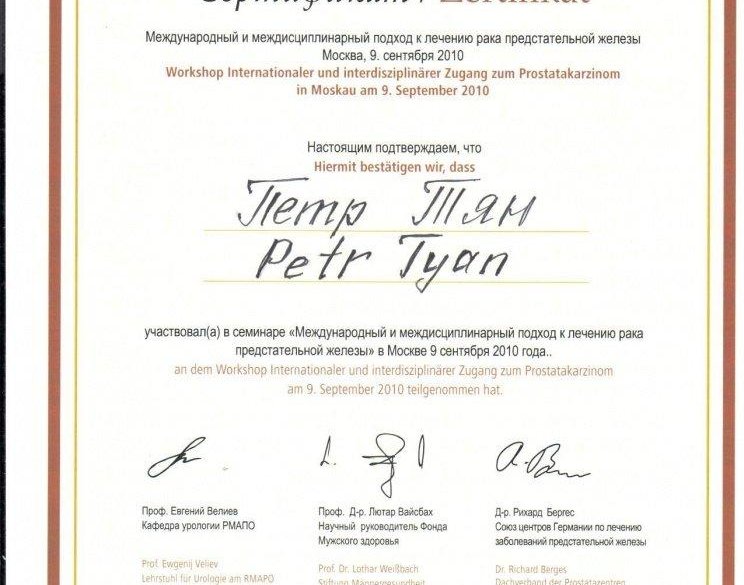 Сертификат / Zertifikat
Международный и междисциплинарный подход к лечению рака предстательной железы
Москва, 9. сентября 2010
Workshop Internationaler und interdisziplinärer Zugang zum Prostatakarzinom
in Moskau am 9. September 2010
Настоящим подтверждаем, что
Hiermit bestätigen wir, dass
Петр Тян
Petr Tyan
участвовал(а) в семинаре «Международный и междисциплинарный подход к лечению рака
предстательной железы» в Москве 9 сентября 2010 года..
an dem Workshop Internationaler und interdisziplinärer Zugang zum Prostatakarzinom
am 9. September 2010 teilgenommen hat.
Проф. Евгений Велиев
Кафедра урологии РМАПО
Prof. Ewgenij Veliev
Lehrstuhl für Urologie am RMAPO
Проф. Д-р. Лютар Вайсбах
Научный руководитель Фонда
Мужского здоровья
Prof. Dr. Lothar Weißbach
Stiftung Männergesundheit
Д-р. Рихард Бергес
Союз центров Германии по лечению
заболеваний предстательной железы
Dr. Richard Berges
Dachverband der Prostatazentren